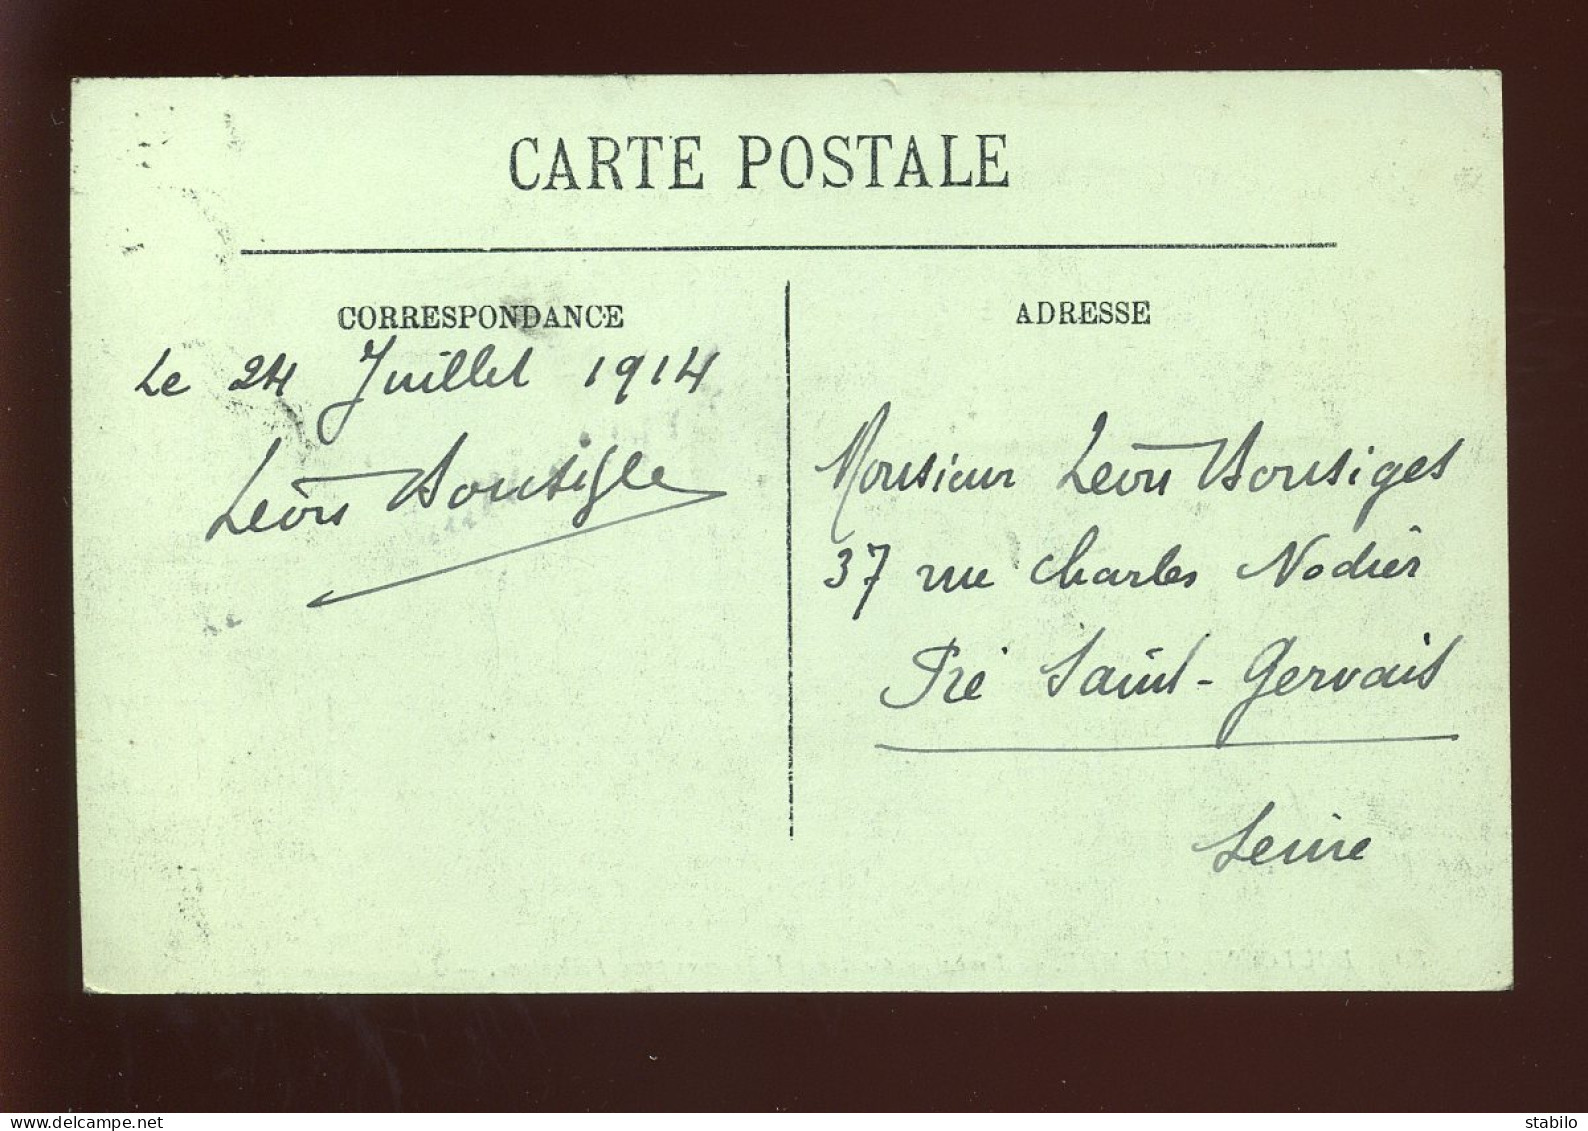 CARTE POSTALE
CORRESPONDANCE
Le 24 Juillet 1914
Léon
ADRESSE
Monsieur Léon Bousiges
37 rue Charles Nodier
Pré Saint-Gervais
Seine
stabilo